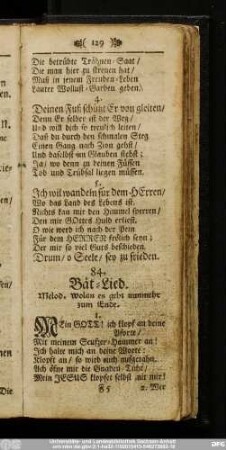 ( 129 )
Die betrübte Trähnen-Saat/
Die man hier zu streuen hat/
Muß in jenem Freuden-Leben
Lauter Wollust-Garben geben.
4.
Deinen Fuß schützt Er von gleiten/
Denn Er selber ist der Weg/
Und will dich so treulich leiten/
Daß du durch den schmalen Steg
Einen Gang nach Zion gehst/
Und daselbst im Glauben stehst:
Ja/ wo denn zu deinen Füssen
Tod und Trübsal liegen müssen.
5.
Ich wil wandeln für dem HErren/
Wo das Land des Lebens ist.
Nichts kan mir den Himmel sperren/
Den mir GOttes Huld erliest.
O wie werd ich nach der Pein
Für dem HERREN frölich seyn:
Der mir so viel Guts beschieden.
Drum/ o Seele/ sey zu frieden.
84.
Bät-Lied.
Melod. Wolan es geht nunmehr
zum Ende.
1.
MEin GOTT! ich klopf an deine
Pforte/
Mit meinem Seufzer-Hammer an!
Ich halte mich an deine Worte:
Klopfet an/ so wird euch aufgethan.
Ach öfne mir die Gnaden-Tühr/
Mein JESUS klopfet selbst mit mir!
F 5
2. Wer